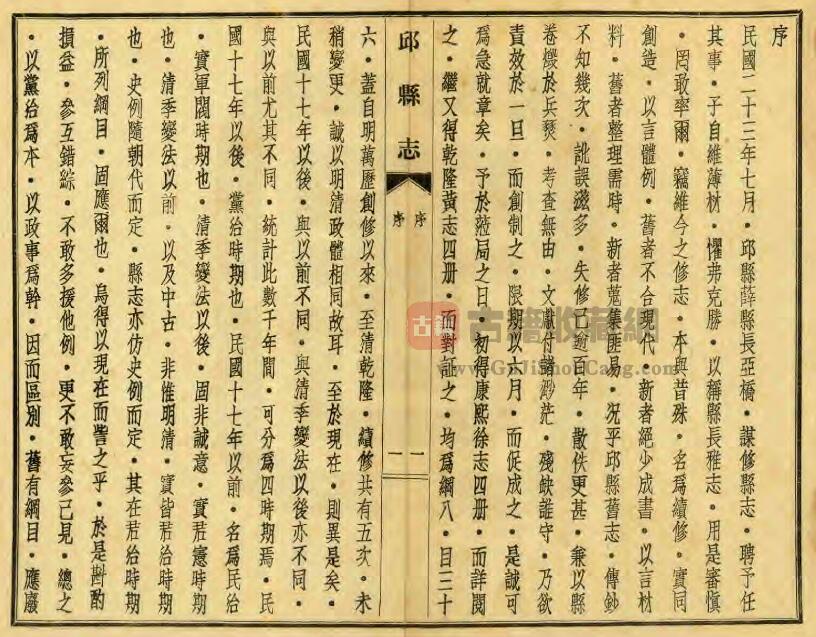 序
民國二十三年七月·邱縣薛縣長亞橋·謀修縣志·聘予任
其事·予自維薄材·懼弗克勝·以稱縣長雅志·用是審愼
·罔敢率爾·竊維今之修志·本與昔殊·名爲續修·實同
創造·以言體例·舊者不合現代·新者絕少成書·以言材
料·舊者整理需時·新者蒐集匪易·況乎邱縣舊志·傳鈔
不知幾次·訛誤滋多·失修已逾百年·散佚更甚·兼以縣
卷燬於兵燹·考查無由·文獻付諸渺茫·殘缺誰守·乃欲
責效於一旦·而創制之·限期以六月·而促成之·是誠可
爲急就章矣·予於蒞局之日·初得康熙徐志四册·而詳閱
之·繼又得乾隆黃志四册·而對証之·均爲綱八·目三十
邱縣志
序 序
一 一
六·蓋自明萬歷創修以來·至清乾隆·續修共有五次·未
稍變更·誠以明清政體相同故耳·至於現在·則異是矣·
民國十七年以後·與以前不同·與清季變法以後亦不同·
與以前尤其不同·統計此數千年間·可分爲四時期焉·民
國十七年以後·黨治時期也·民國十七年以前·名爲民治
·實軍閥時期也·清季變法以後·固非誠意·實君憲時期
也·清季變法以前·以及中古·非惟明清·實皆君治時期
也·史例隨朝代而定·縣志亦仿史例而定·其在君治時期
·所列綱目·固應爾也·烏得以現在而訾之乎·於是斟酌
損益·參互錯綜·不敢多援他例·更不敢妄參己見·總之
·以黨治爲本·以政事爲幹·因而區別·舊有綱目·應廢
古籍
古籍收藏網
www.GuJiShouCang.com